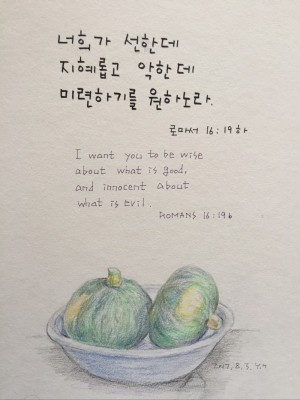 너희가 선한데
지혜롭고 악한데
미련하기를 원하노라.
로마서 16:19하
I want you to be wise
about what is good,
and innocent about
what is evil.
ROMANS 16:19b
2017. 8. 3.